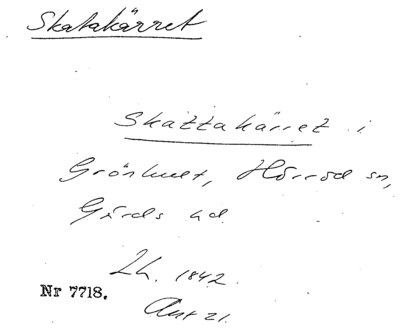 Skatakärret
Skattakärret i
Grönhult, Hörröd sn,
Gärds hd.
Lh. 1842.
Nr 7718.
Akt 21.